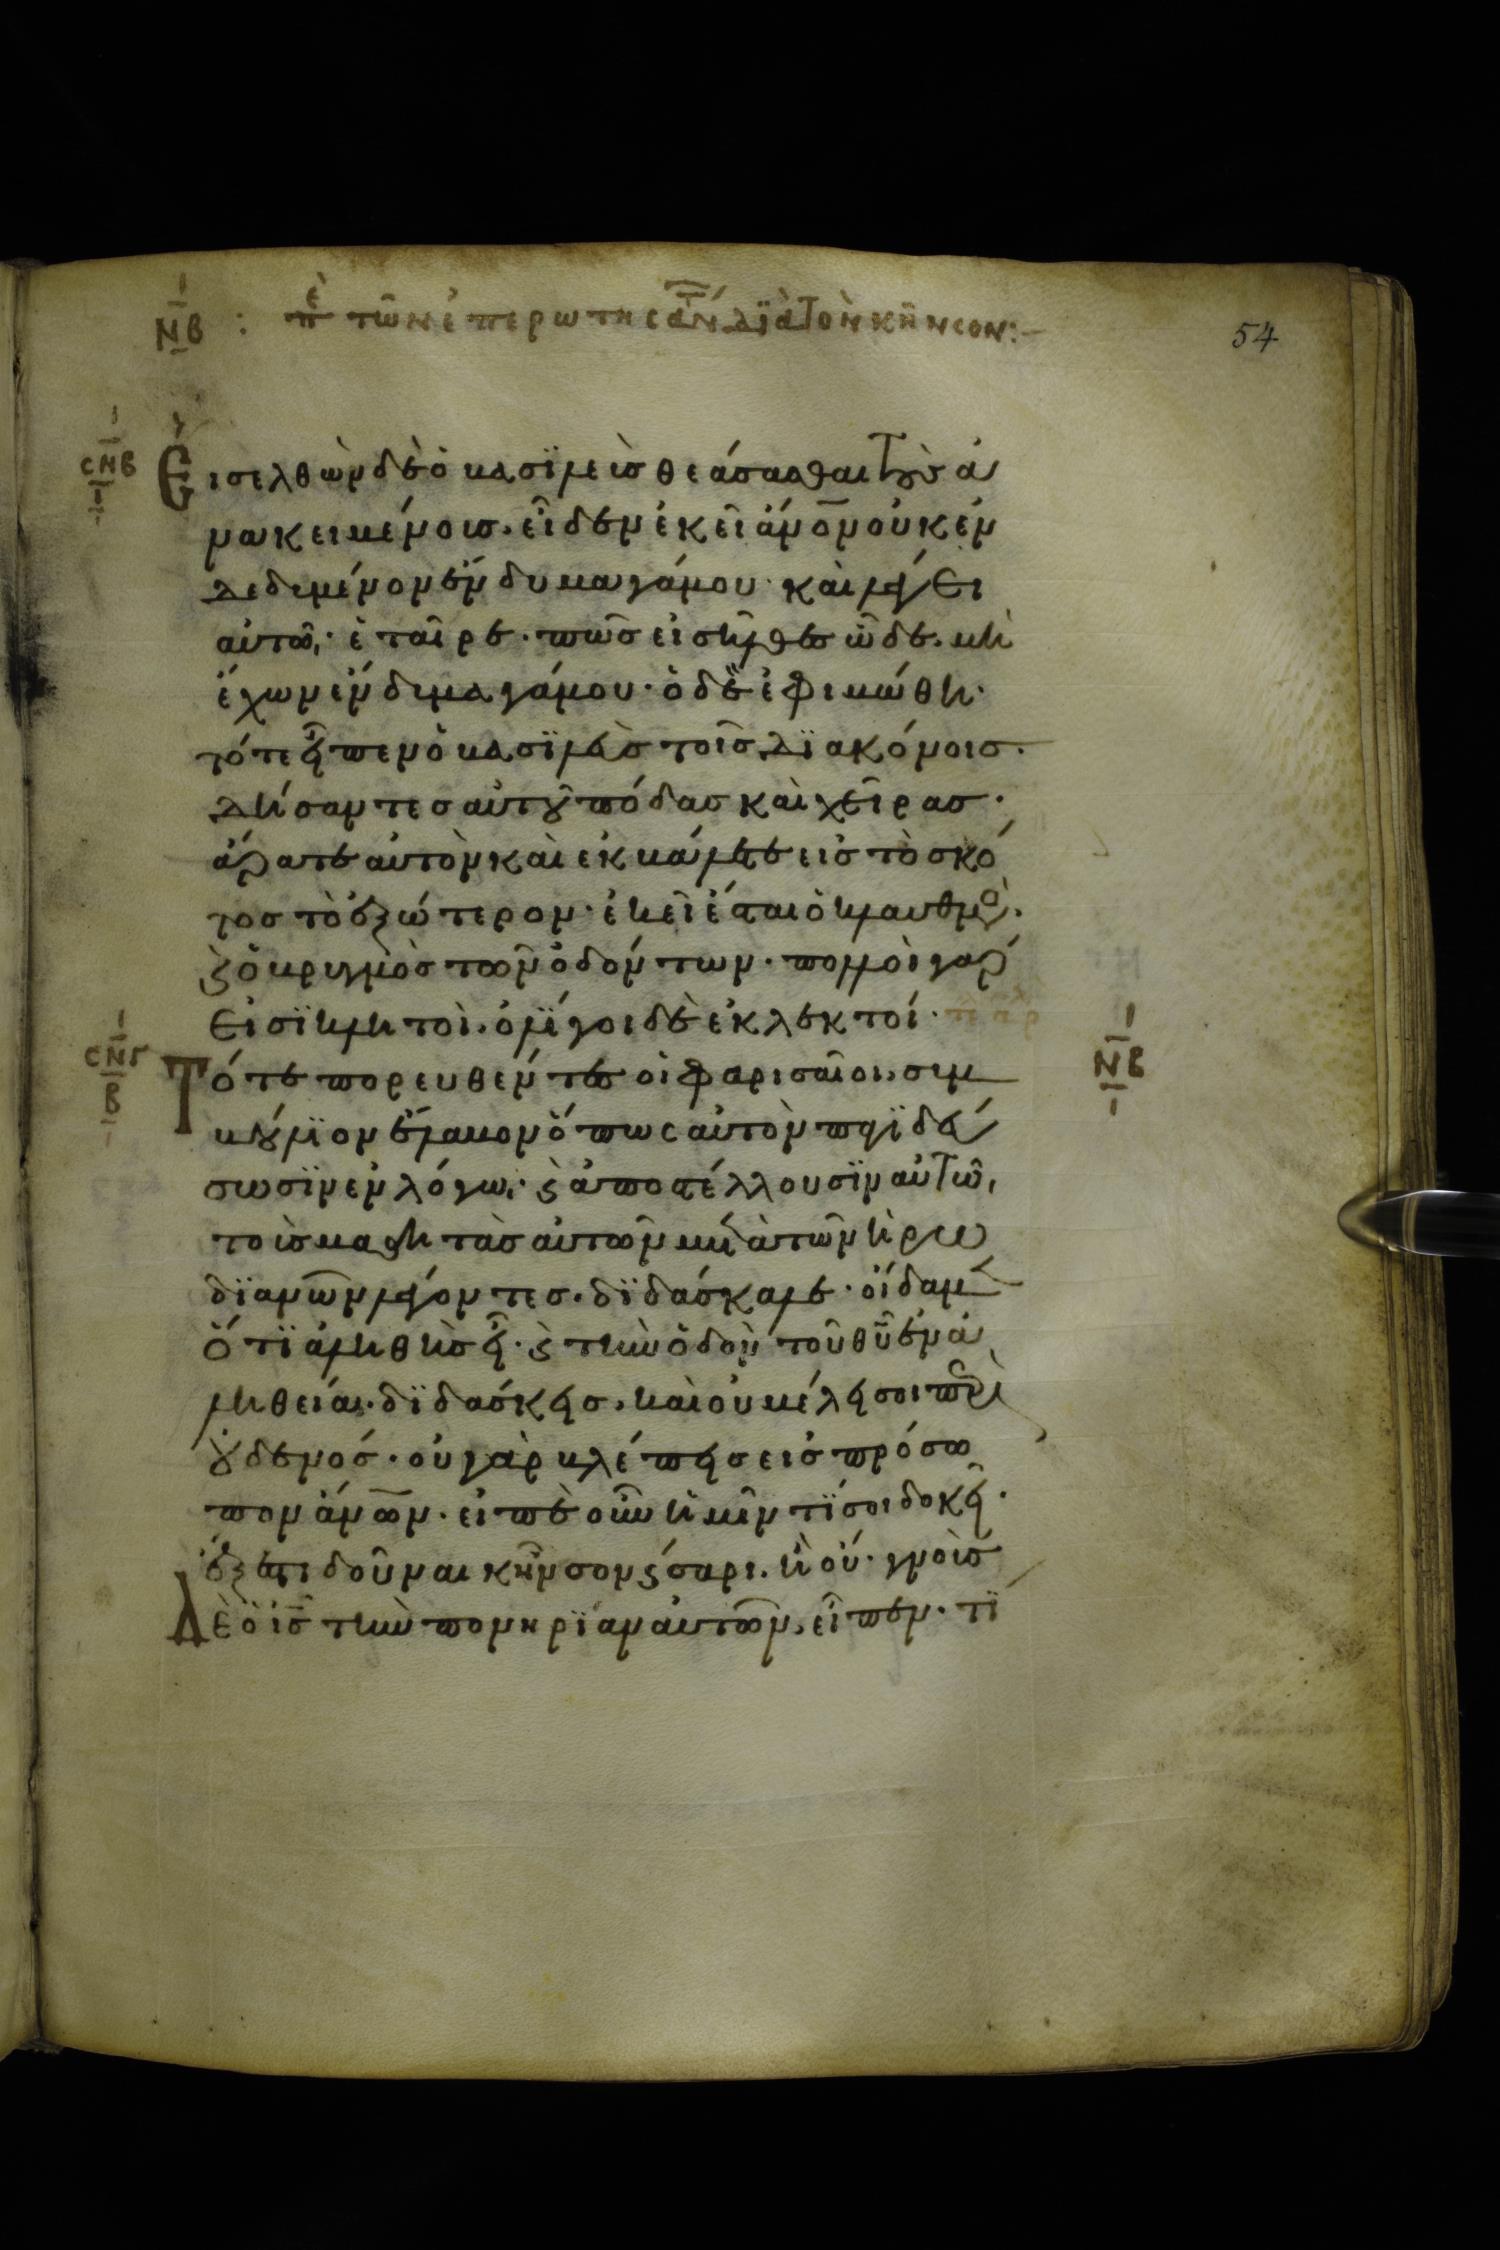 ΝΒ : πὲ τῶν ἐπερωτησάντ διὰ τὸν κῆνσον:
54
ϹΝΒ
Εἰσελθὼν δὲ ὁ βασϊλεὺσ θεάσασθαι τοὺσ ἀ
νακειμένουσ. εἶδεν ἐκεῖ ἀνον οὐκ ἐν
δεδυμένον ἔνδυμα γάμου· καὶ λέγει
αὐτῶ· ἑταῖρε. πῶσ εἰσῆλθεσ ὧδε. μὴ
ἔχων ἔνδυμα γάμου· ὁ δὲ ἐφιμώθη·
τότε εἶπεν ὁ βασϊλεὺσ τοῖσ δϊακόνοισ·
δήσαντεσ αὐτοῦ πόδασ καὶ χεῖρασ·
ἄρατε αὐτὸν καὶ ἐκβάλετε εἰσ τὸ σκό
τοσ τὸ ἐξώτερον· ἐκεῖ ἔσται ὁ κλαυθμὸ.
ϗ ὁ βρυγμὸσ τῶν ὀδόντων· πολλοὶ γαρ
εἰσϊ κλητοὶ. ὀλϊγοι δὲ ἐκλεκτοί·
ϹΝΓ Β
ΝΒ
Τότε πορευθέντεσ οἱ φαρισαῖοι. συμ
βούλϊον ἔλαβον ὅπωσ αὐτὸν παγϊδεύ
σωσϊν ἐν λόγω· ϗ ἀποστέλλουσϊν αὐτῶ,
τοὺσ μαθητὰσ αὐτῶν μετὰ τῶν ἡρω
δϊανῶν λέγοντεσ. δϊδάσκαλε· οἴδαμεν
ὅτϊ ἀληθὴσ εἶ· ϗ τὴν ὁδὸν τοῦ θῦ ἐν ἀ
ληθεία. δϊδάσκεισ. καὶ οὐ μέλει σοι περὶ
οὐδενόσ· οὐ γὰρ βλέπεισ εἰσ πρόσω
πον ἀνων. εἰπὲ οὖν ἡμῖν τϊ σοι δοκεῖ·
ἔξεστι δοῦναι κῆνσον καίσαρι. ἢ οὔ· γνοὺσ
Δὲ ὁ ισ τὴν πονηρϊαν αὐτῶν. εἶπεν· τϊ